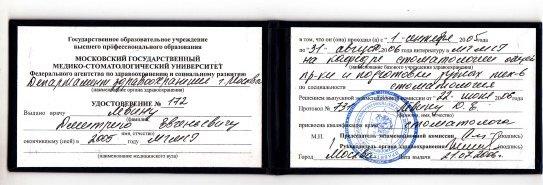 Государственное образовательное учреждение
высшего профессионального образования
МОСКОВСКИЙ ГОСУДАРСТВЕННЫЙ
МЕДИКО-СТОМАТОЛОГИЧЕСКИЙ УНИВЕРСИТЕТ
Федерального агентства по здравоохранению и социальному развитию
Департамент здравоохранения г. Москва
(наименование органа здравоохранения)
УДОСТОВЕРЕНИЕ № 172
Выдано врачу
(фамилия)
Дмитрию Евгеньевичу
(имя, отчество)
окончившему (ей) в 2005 году МГМСУ
(наименование медицинского вуза)
в том, что он (она) проходил (а) с 1 сентября 2005 года
по 31 августа 2006 интернатуру в МГМСУ
на кафедре стоматологии общей
пр-ки и подготовки зубных тех-в
по специальности стоматология
Решением выпускной экзаменационной комиссии от 22 2006
Протокол № 73 Д.Е.
(фамилия, имя, отчество)
присвоена квалификация стоматолога
М.П. Председатель экзаменационной комиссии (подпись)
Руководитель органа здравоохранения (подпись)
Город Москва Дата выдачи 21.07.2006г.